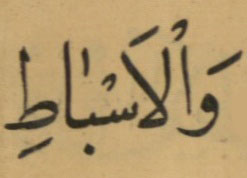 وَاْلاَسْبٰاطِ